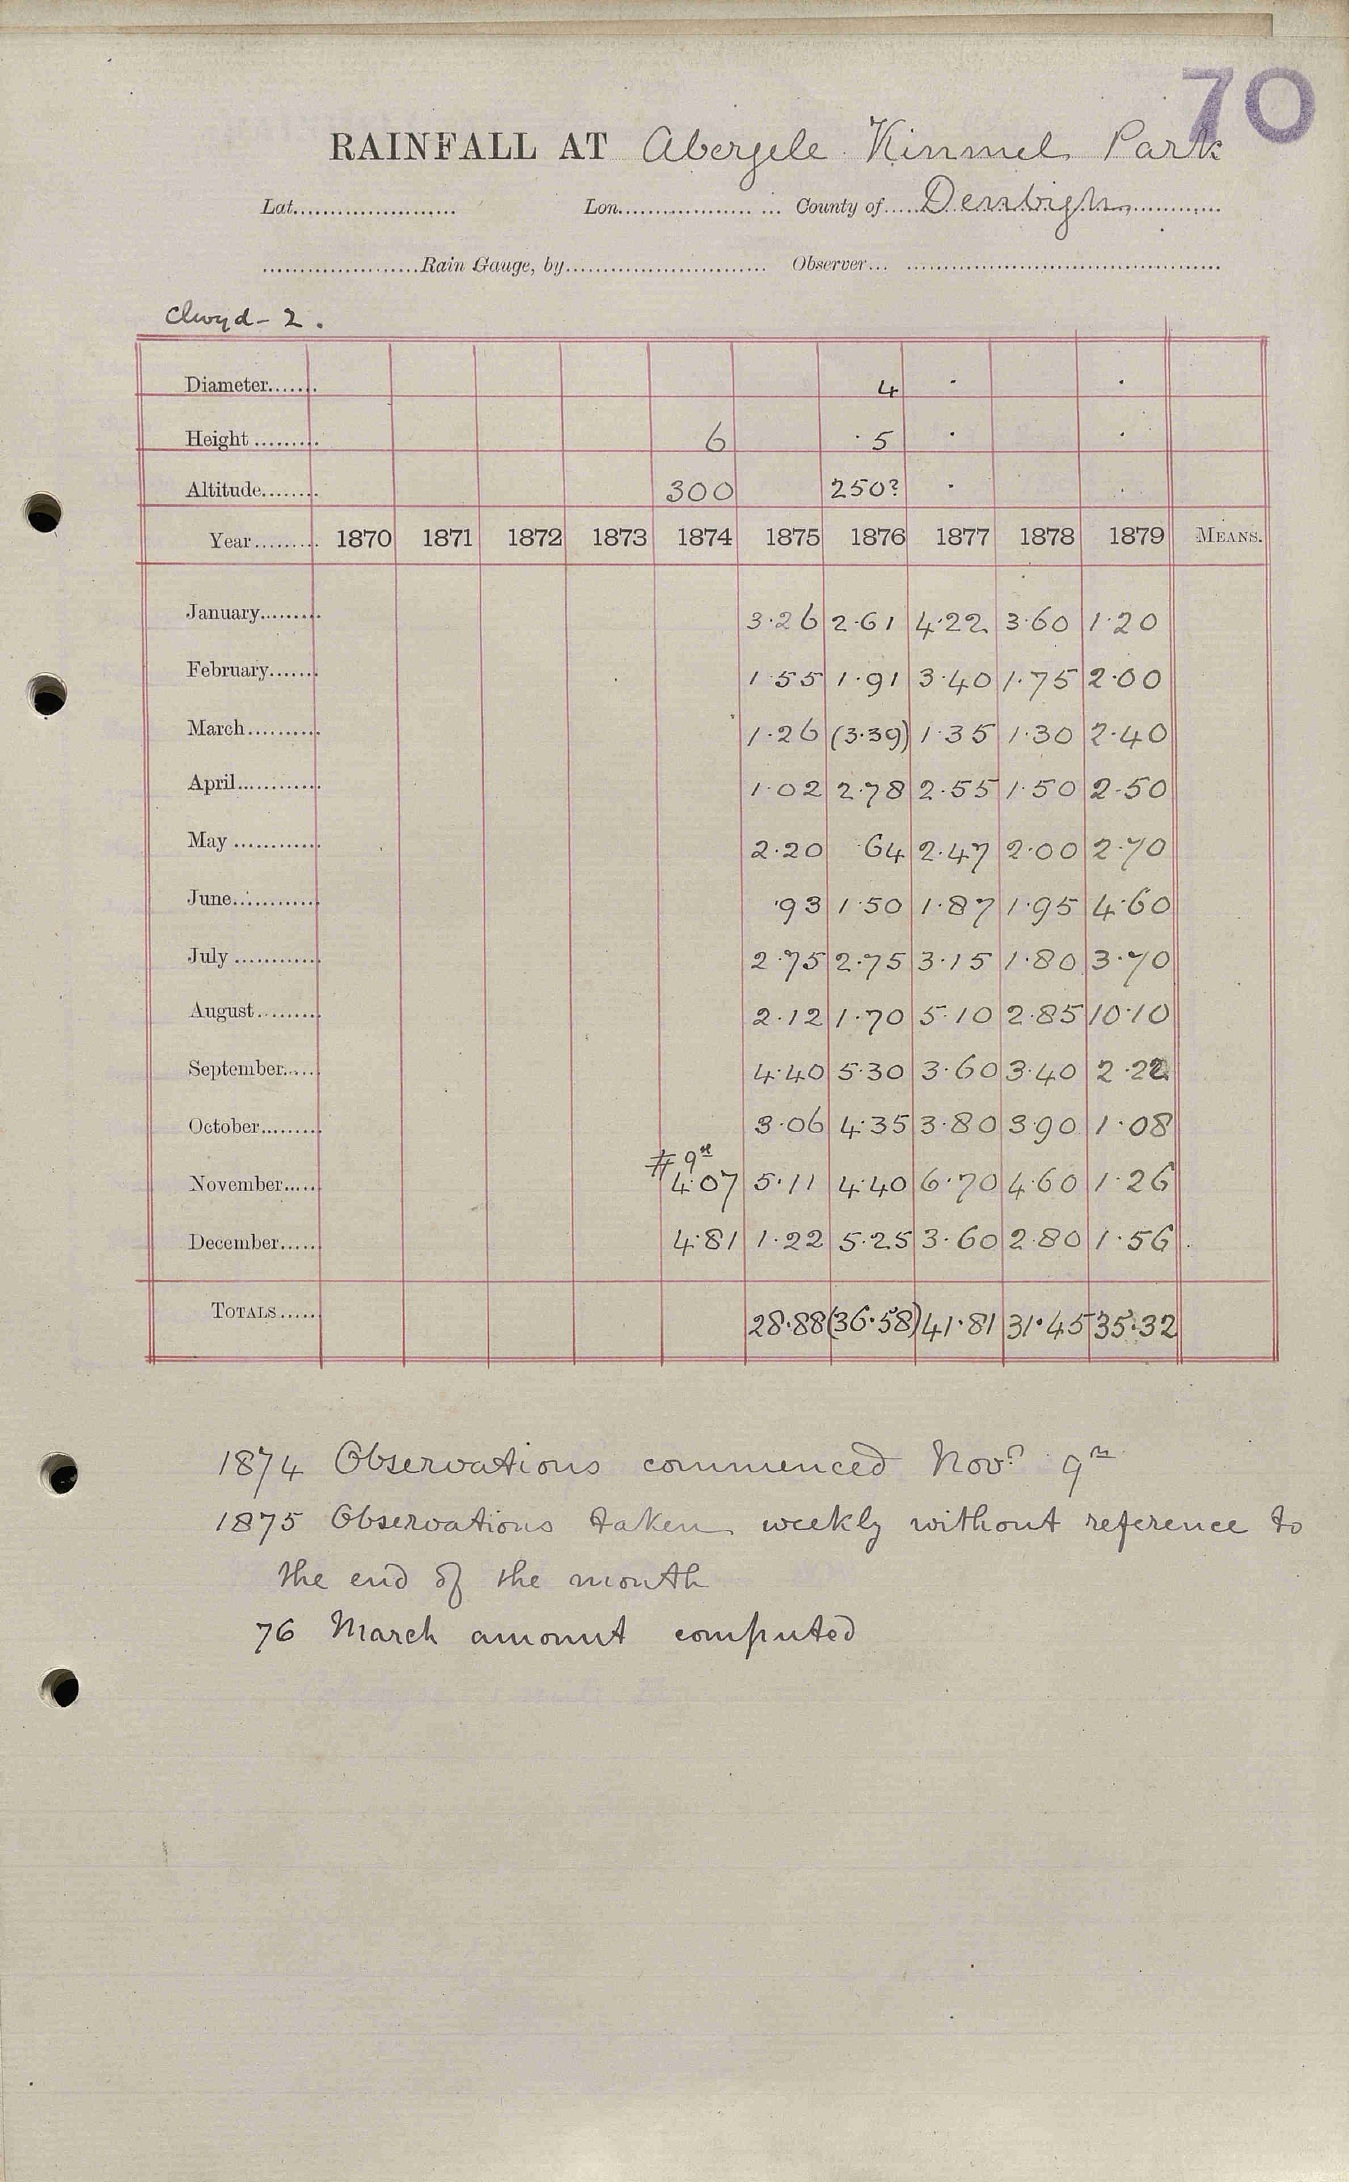 70
RAINFALL AT Abergele Kinmel Park
Lat...................... Lon...................... County of.....Denbigh............
.....................Rain Gauge, by........................... Observer... ..........................................
Clwyd - 2.
Diameter....... 4 · ·
Height ......... 6 · 5 · ·
Altitude........ 300 250? · ·
Year......... 1870 1871 1872 1873 1874 1875 1876 1877 1878 1879 MEANS.
January......... 3·26 2·61 4·22 3·60 1·20
February....... 1·55 1·91 3·40 1·75 2·00
March.......... 1·26 (3·39) 1·35 1·30 2·40
April............ 1·02 2·78 2·55 1·50 2·50
May ............ 2·20 ·64 2·47 2·00 2·70
June............ ·93 1·50 1·87 1·95 4·60
July ............ 2·75 2·75 3·15 1·80 3·70
August......... 2·12 1·70 5·10 2·85 10·10
September...... 4·40 5·30 3·60 3·40 2·22
October......... 3·06 4·35 3·80 3·90 1·08
# 9th
November...... 4·07 5·11 4·40 6·70 4·60 1·26
December...... 4·81 1·22 5·25 3·60 2·80 1·56
TOTALS...... 28·88 (36·58) 41·81 31·45 35·32
1874 Observations commenced Novr 9th
1875 Observations taken weekly without reference to
the end of the month
76 March amount computed